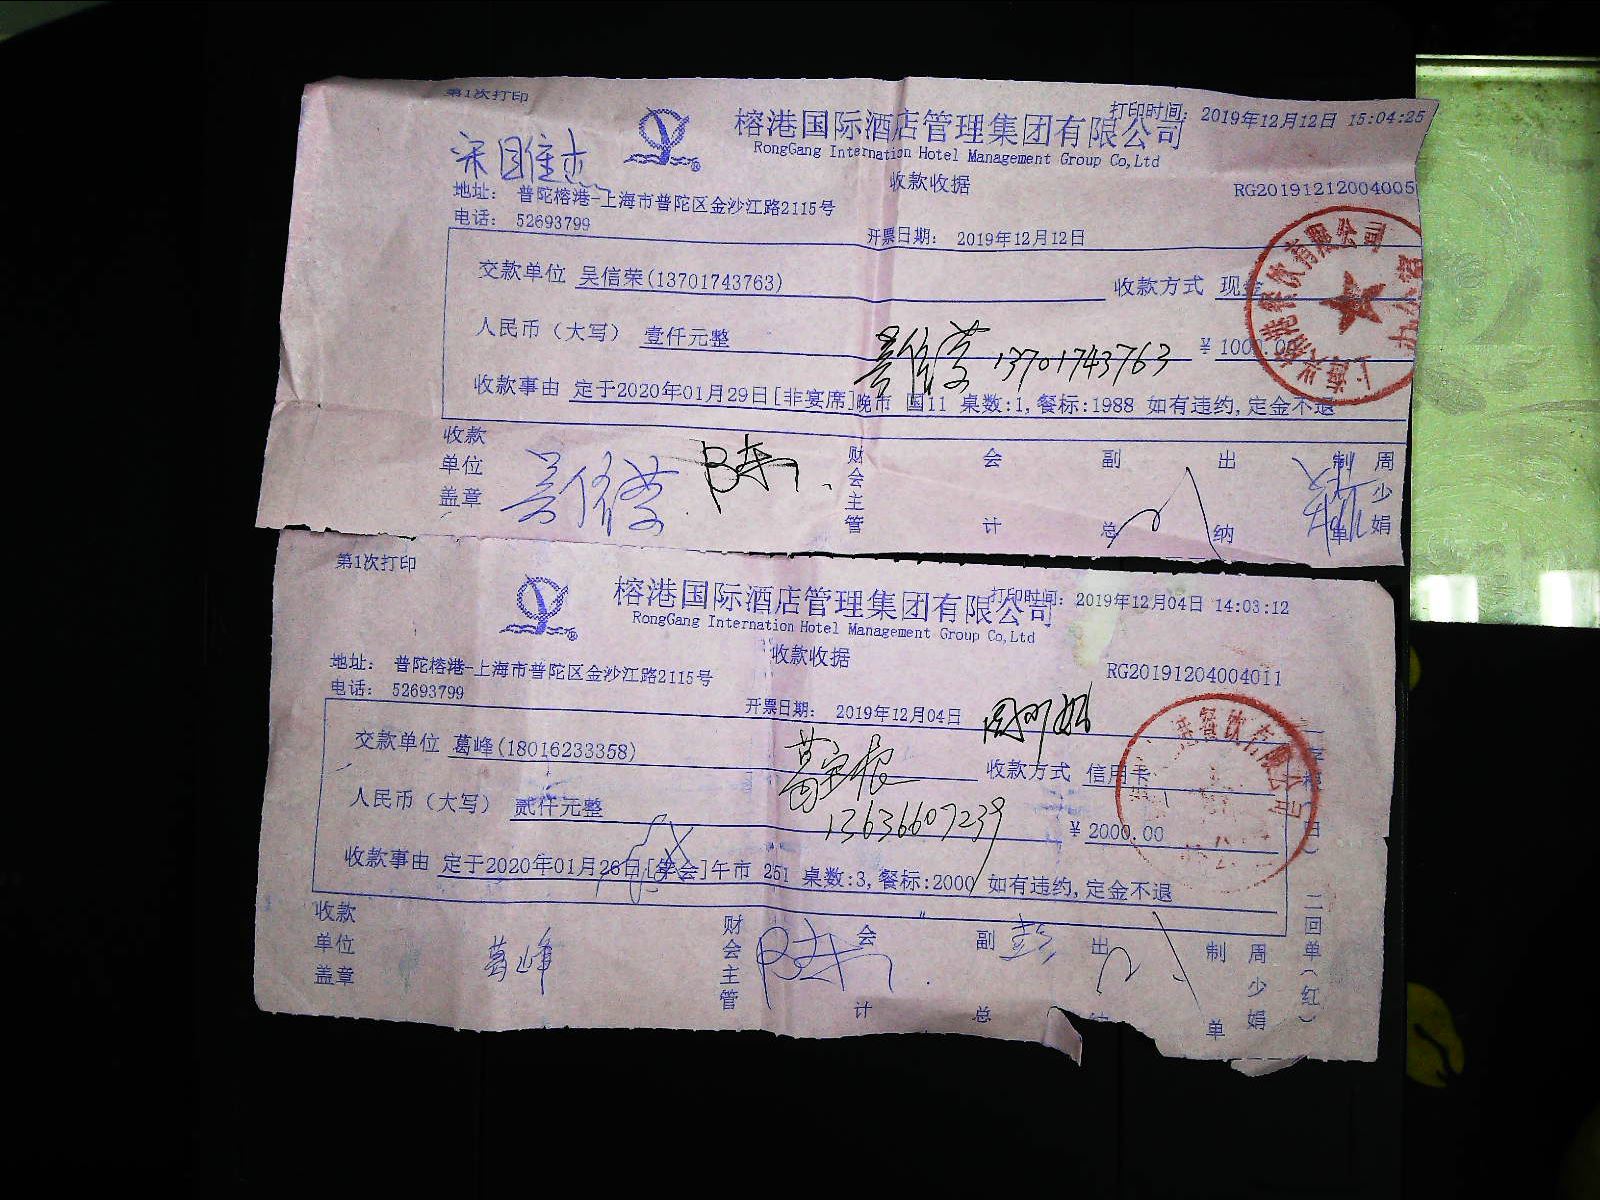 第1次打印
打印时间: 2019年12月12日 15:04:25
榕港国际酒店管理集团有限公司
RongGang Internation Hotel Management Group Co,Ltd
收款收据
RG20191212004005
地址: 普陀榕港-上海市普陀区金沙江路2115号
电话: 52693799
开票日期: 2019年12月12日
交款单位 吴信荣(13701743763) 收款方式 现金
人民币（大写） 壹仟元整 ¥ 1000.00
吴信荣 13701743763
收款事由 定于2020年01月29日[非宴席]晚市 国11 桌数:1,餐标:1988 如有违约,定金不退
收款单位盖章 吴信荣 财会主管 会计 副总 出纳 制单 周少娟
第1次打印
打印时间: 2019年12月04日 14:03:12
榕港国际酒店管理集团有限公司
RongGang Internation Hotel Management Group Co,Ltd
收款收据
RG20191204004011
地址: 普陀榕港-上海市普陀区金沙江路2115号
电话: 52693799
开票日期: 2019年12月04日
交款单位 葛峰(18016233358) 收款方式 信用卡
人民币（大写） 贰仟元整 ¥ 2000.00
13636607239
收款事由 定于2020年01月26日[年会]午市 251 桌数:3,餐标:2000 如有违约,定金不退
收款单位盖章 葛峰 财会主管 会计 副总 出纳 制单 周少娟
二回单(红)
港餐饮有限公司